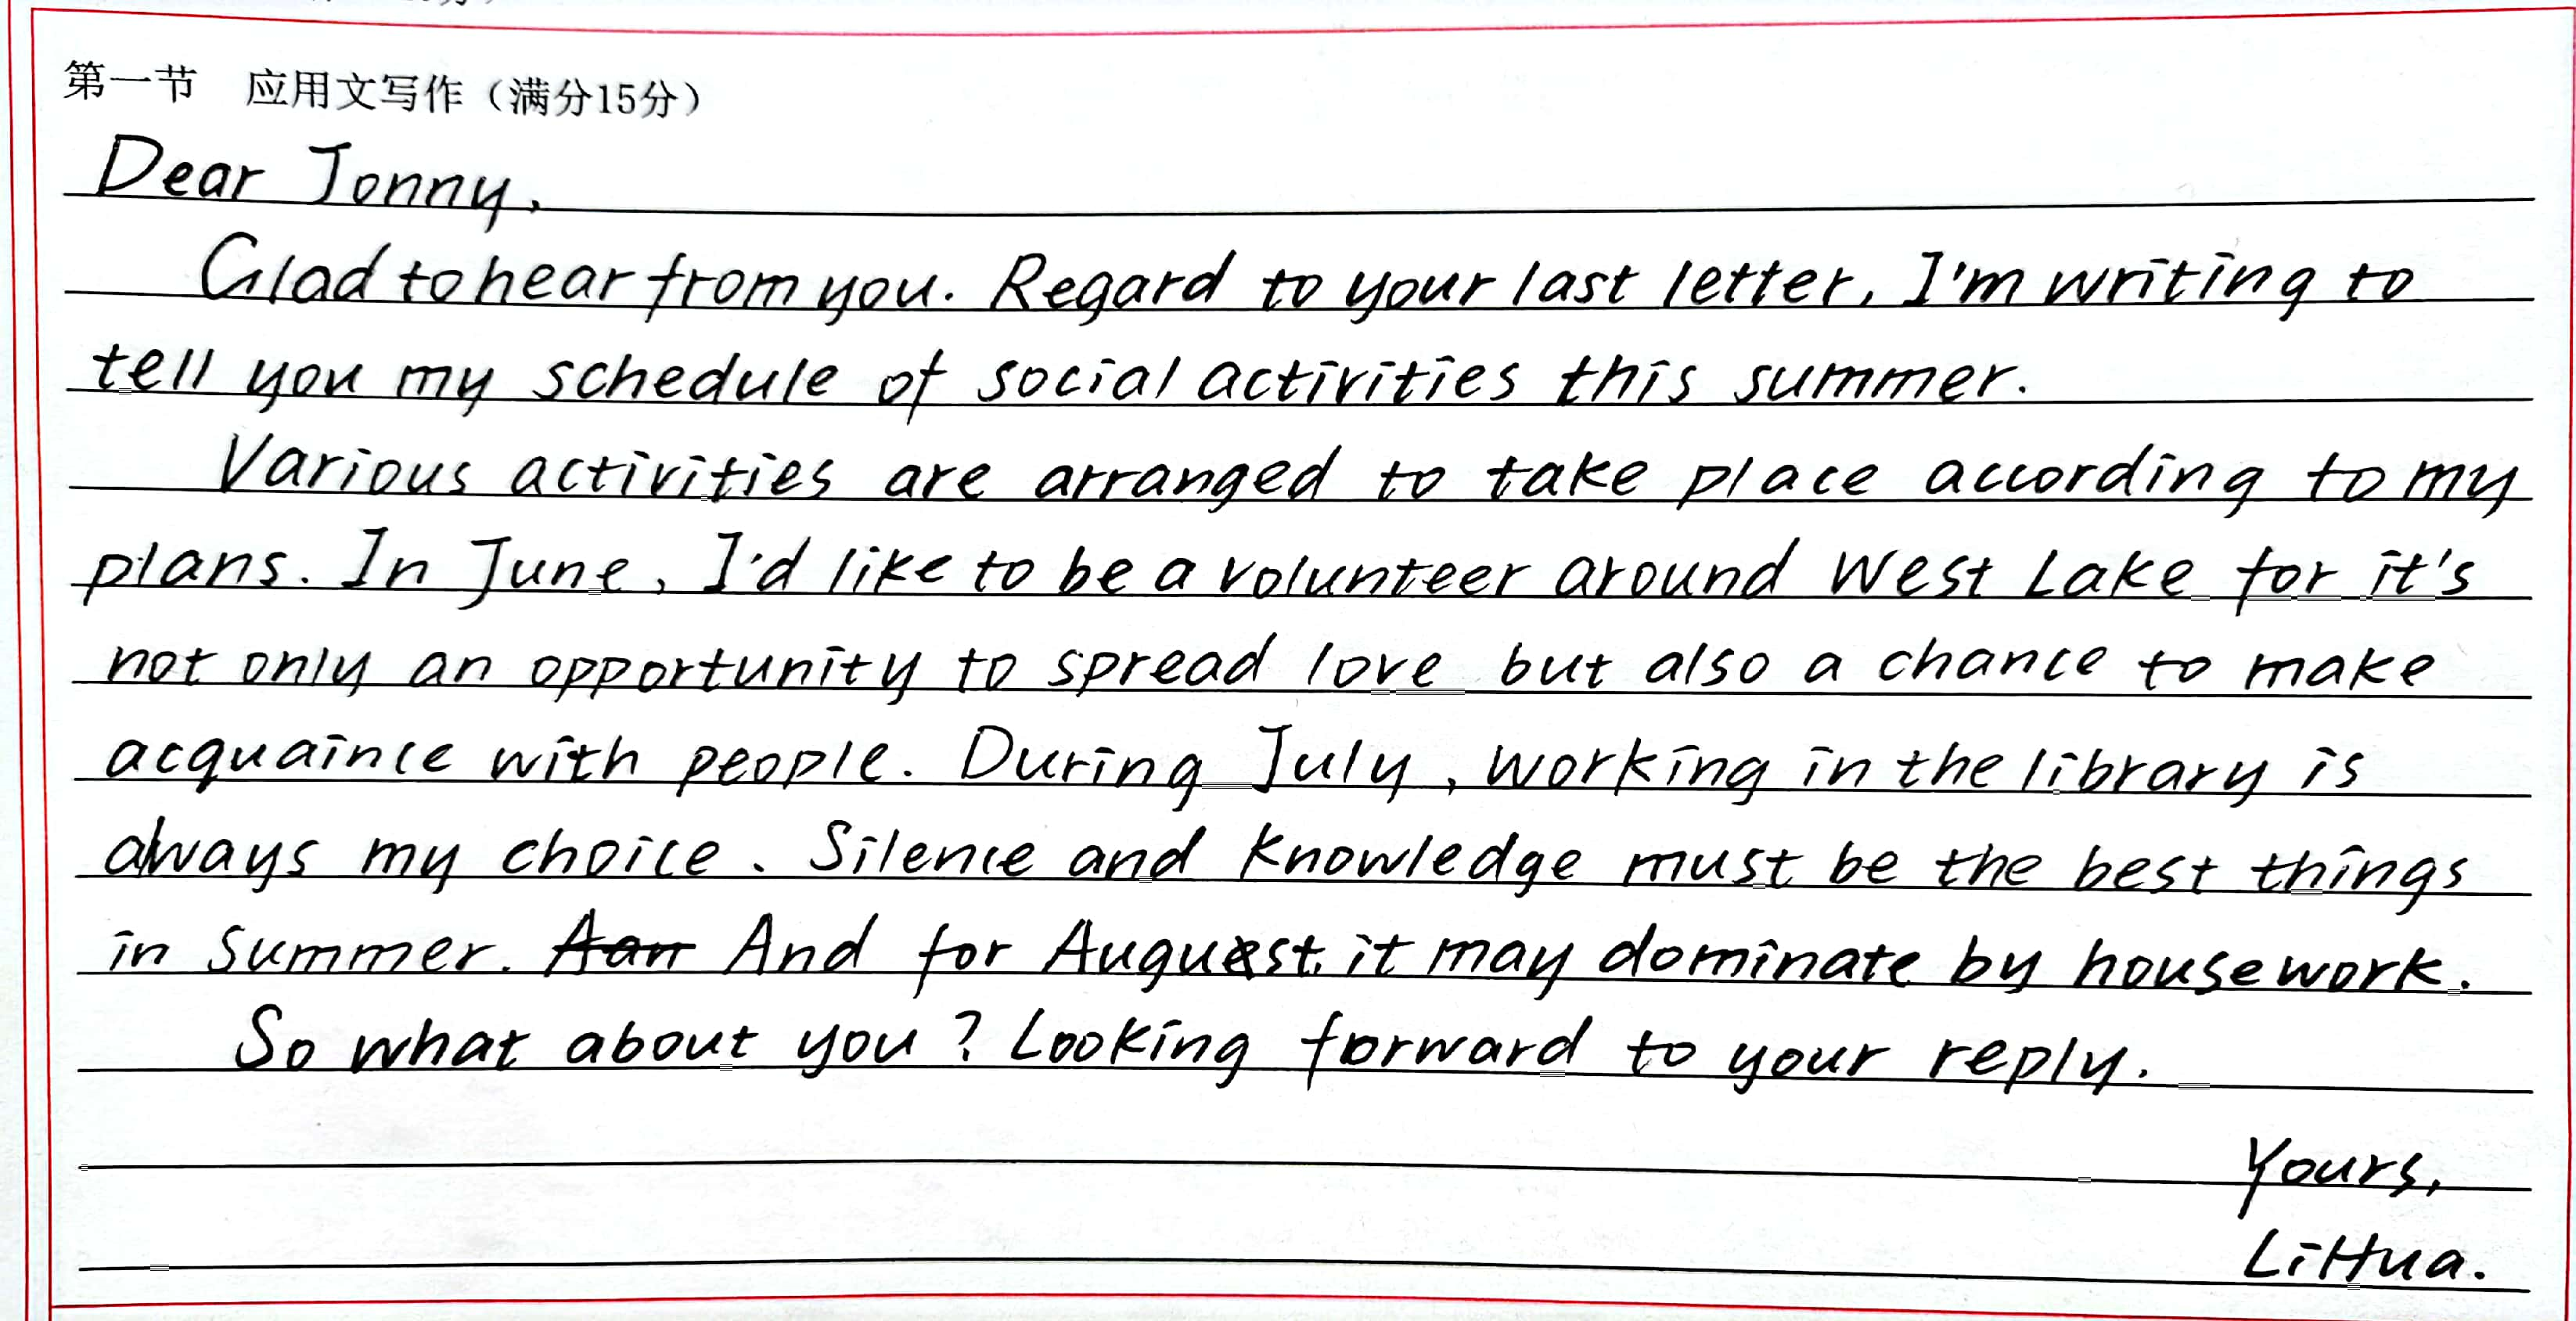 第一节 应用文写作（满分15分）
Dear Jonny,
Glad to hear from you. Regard to your last letter, I'm writing to
tell you my schedule of social activities this summer.
Various activities are arranged to take place according to my
plans. In June, I'd like to be a volunteer around West Lake for it's
not only an opportunity to spread love but also a chance to make
acquaince with people. During July, working in the library is
always my choice. Silence and knowledge must be the best things
in summer. And for August, it may dominate by housework.
So what about you? Looking forward to your reply.
Yours,
LiHua.